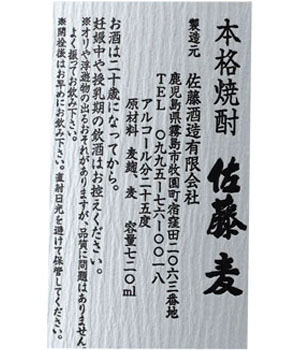 本格焼酎 佐藤 麦
製造元 佐藤酒造有限会社
鹿児島県霧島市牧園町宿窪田二〇六三番地
TEL 〇九九五-七六-〇〇一八
アルコール分二十五度
原材料 麦麹、麦 容量七二〇ml
お酒は二十歳になってから。
妊娠中や授乳期の飲酒はお控えください。
※オリや浮遊物の出るおそれがありますが、品質に問題はありません。
よく振ってお飲み下さい。
※開栓後はお早めにお飲み下さい。直射日光を避けて保管してください。